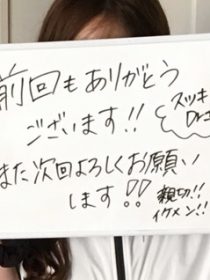 前回もありがとう
ございます!!
スッキ
また次回よろしくお願い
します!!
親切!!
イケメン!!